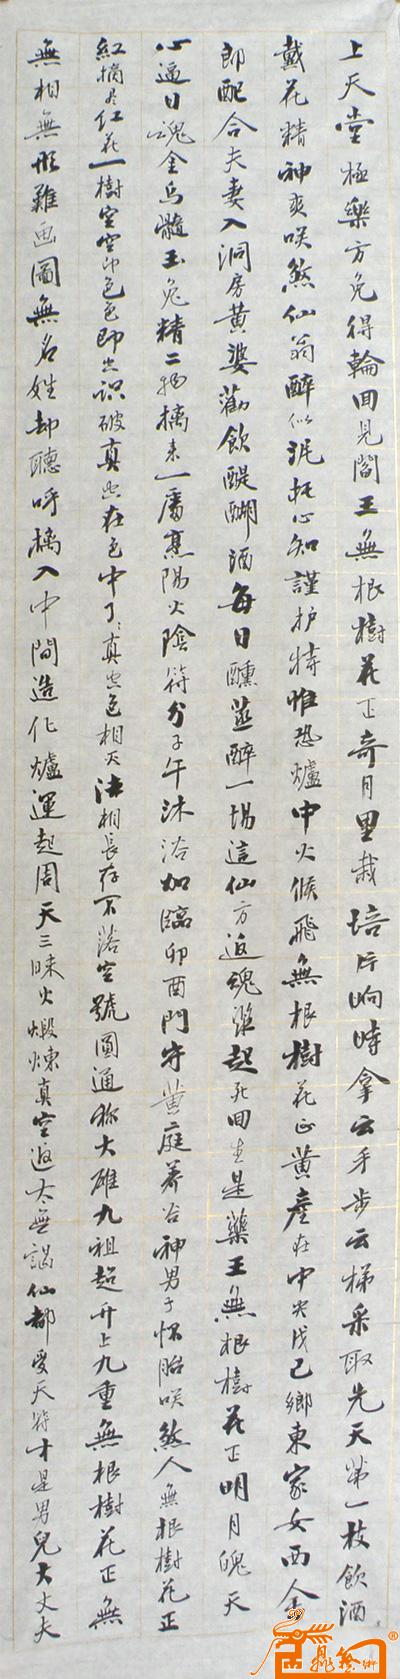 上天堂極樂方免得輪回見閻王無根樹花正奇月里栽培片晌時拿云手步云梯采取先天第一枝飲酒
戴花精神爽咲煞仙翁醉似泥托心知謹护持惟恐爐中火候飛無根樹花正黄產在中央戊己鄉東家女西金
郎配合夫妻入洞房黄婆勸飲醍醐酒每日醺蒸醉一場這仙方返魂漿起死回生是藥王無根樹花正明月魄天
心逼日魂金烏髓玉兔精二物摛来一處烹陽火陰符分子午沐浴加臨卯酉門守黄庭养谷神男子怀胎咲煞人無根樹花正
紅摘尽紅花一樹空空即色色即空识破真空在色中了了真空色相灭法相長存不落空號圓通称大雄九祖超升上九重無根樹花正無
無相無形難画圖無名姓却聽呼摛入中間造化爐運起周天三昧火煅煉真空返太無謁仙都受天符才是男兒大丈夫